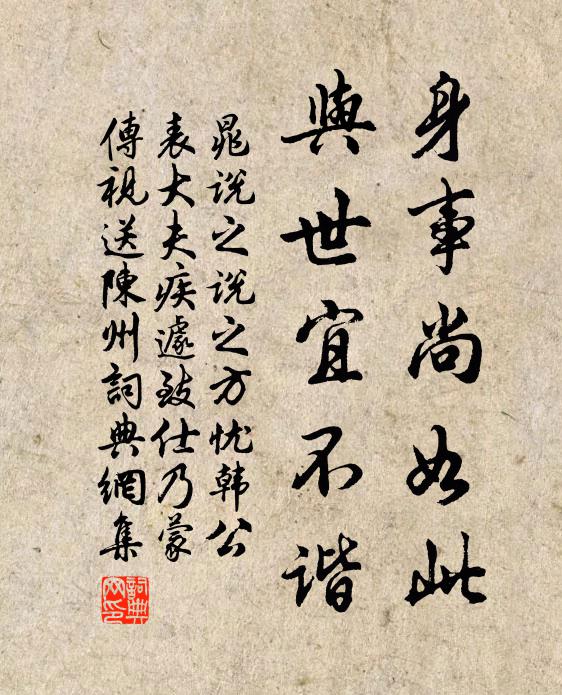 身事尚如此
與世宜不谐
晁說之說之方忧韓公
表大夫疾遽致仕乃蒙
傳視送陳州詞典網集
詞典
网印